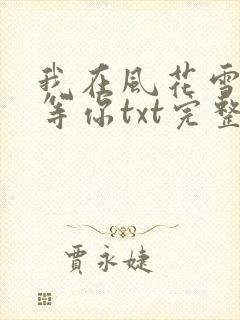 我在風花雪
等你txt完整
賈永婕